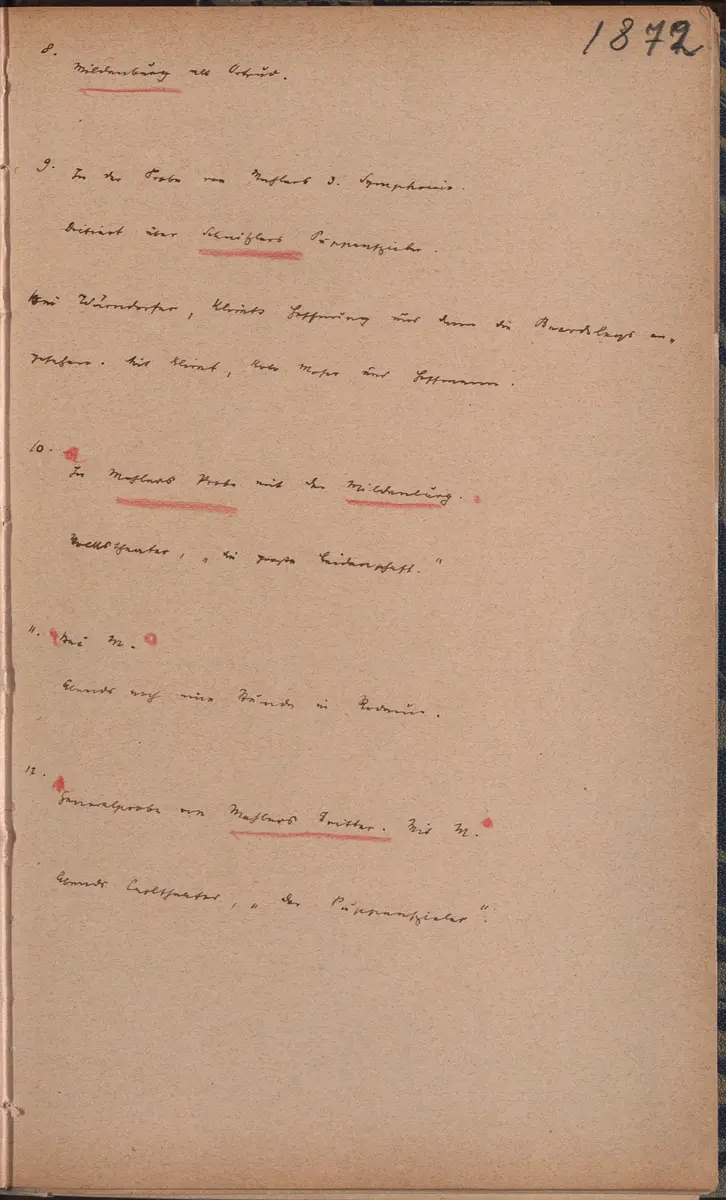 1872
8.
Mildenburg als Ortrud.
9.
In der Probe von Mahlers 3. Symphonie.
Dictiert über Schnitzlers Puppenspieler.
Bei Wärndorfer, Klimts Hoffnung und dann die Beardsleys an-
gesehen. Mit Klimt, Kolo Moser und Hoffmann.
10.
In Mahlers Probe mit der Mildenburg.
Volkstheater, „die große Leidenschaft."
11. Bei M.
Abends noch eine Stunde in Rodaun.
12.
Generalprobe von Mahlers Dritter. Mit M.
Abends Carltheater, „der Puppenspieler".